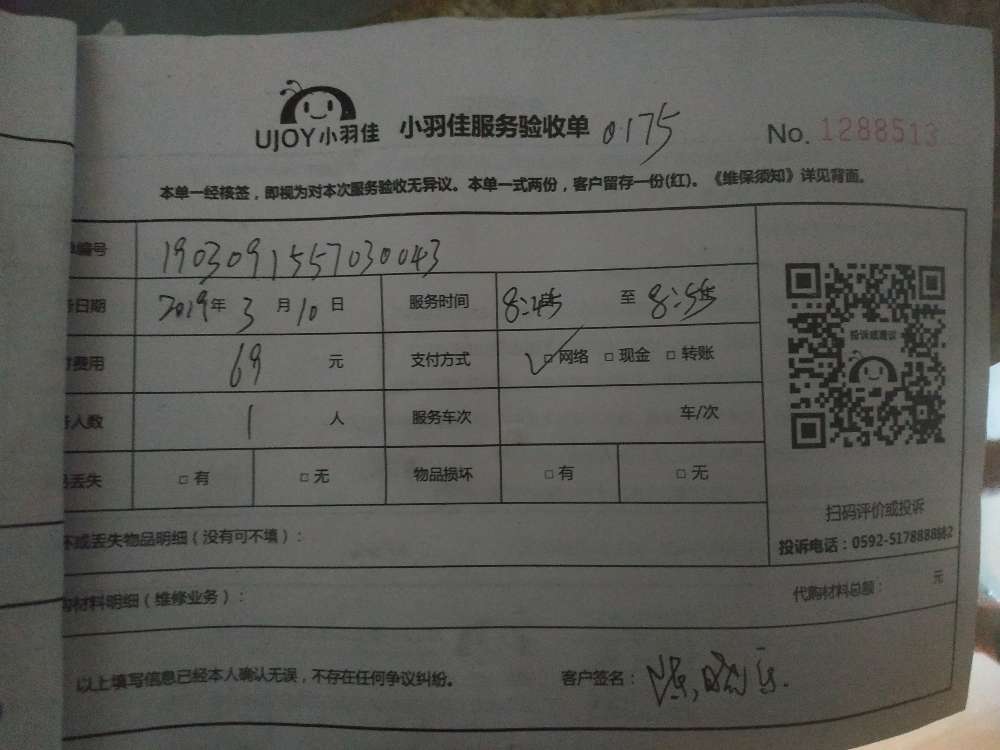 UJOY小羽佳 小羽佳服务验收单 0175 No. 1288513
本单一经核签，即视为对本次服务验收无异议。本单一式两份，客户留存一份(红)。《维保须知》详见背面。
编号 1903091557030043
日期 2019年 3 月 10 日 服务时间 8:45 至 8:55
费用 69 元 支付方式 ✓□ 网络 □ 现金 □ 转账
人数 1 人 服务车次 车/次
丢失 □ 有 □ 无 物品损坏 □ 有 □ 无
投诉或建议
扫码评价或投诉
投诉电话：0592-5178888
坏或丢失物品明细（没有可不填）：
购材料明细（维修业务）： 代购材料总额： 元
以上填写信息已经本人确认无误，不存在任何争议纠纷。 客户签名：